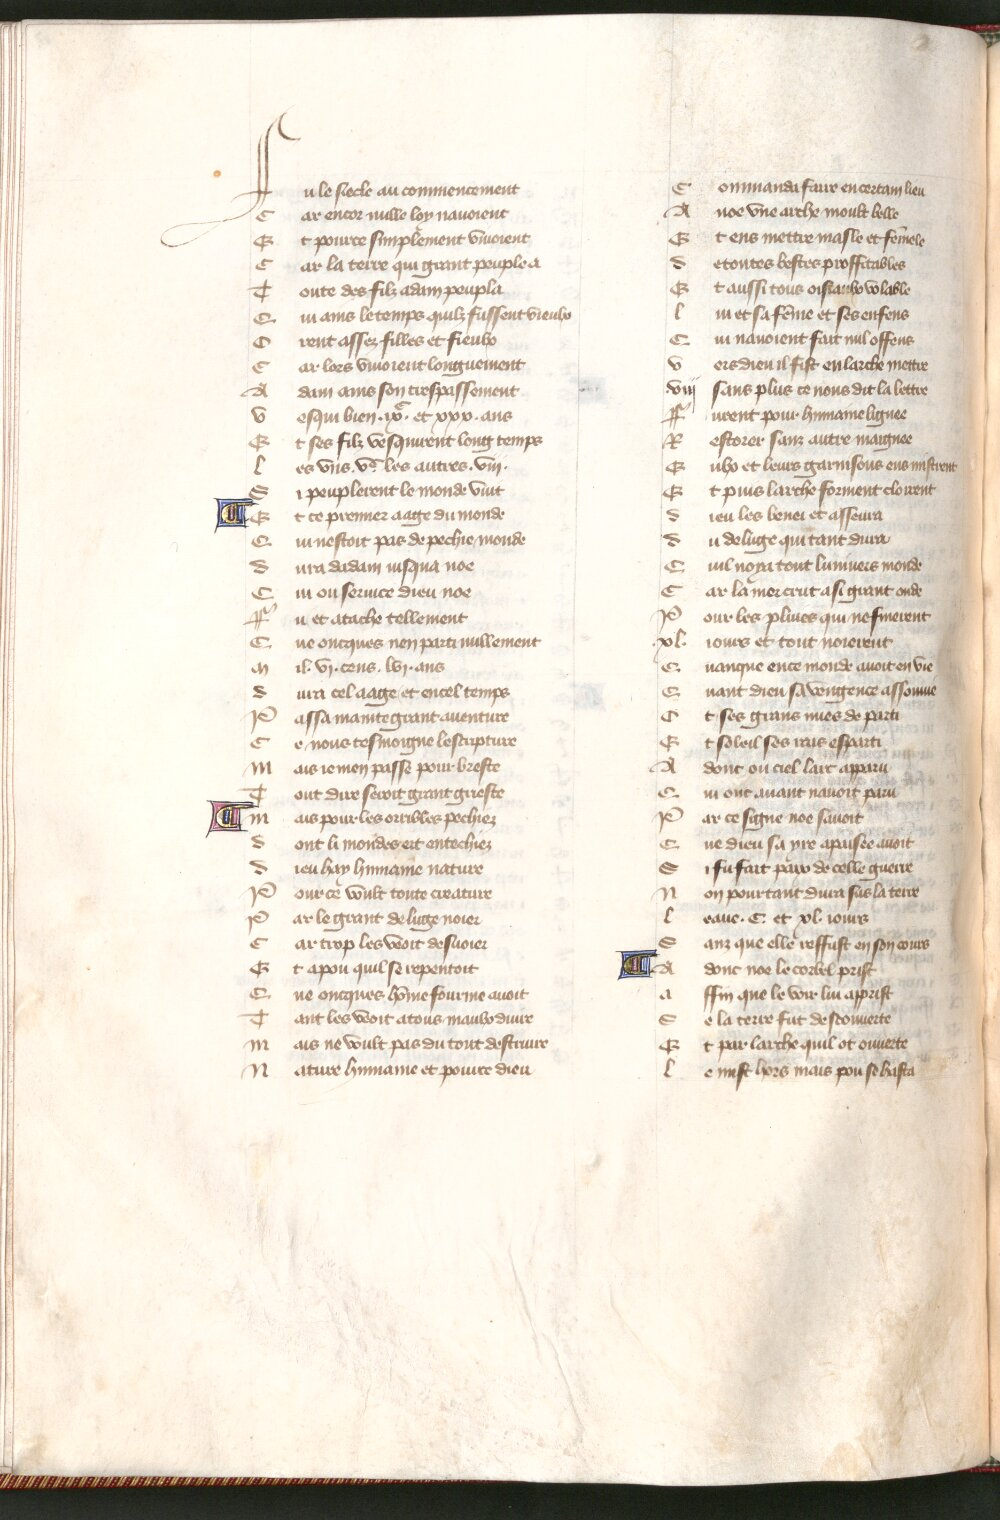 Fu le siecle au commencement
Car encor nulle loy nauoient
Et pource simplement viuoient
Car la terre qui grant peuple a
Toute des filz adam peupla
Qui ains le temps quilz fussent vieulx
Orent assez filles et fieulx
Car lors viuoient longuement
Adam ains son trespassement
Vesqui bien .ixᶜ. et xxx. ans
Et ses filz vesquirent long temps
Les vns .vᶜ. les autres .viij.
Si peuplerent le monde vuit
Et ce premier aage du monde
Qui nestoit pas de pechie monde
Dura dadam iusqua noe
Qui ou seruice dieu noe
Fu et atache tellement
Que oncques nen parti nullement
Mil. vi. cens. lvj. ans
Dura cel aage et en cel temps
Passa mainte grant auenture
Ce nous tesmoigne lescripture
Mais ie men passe pour briefte
Tout dire seroit grant griefte
Mais pour les orribles pechiez
Dont li mondes ert entechiez
Dieu hay humaine nature
Pour ce voult toute creature
Par le grant deluge noier
Car trop les veoit desuoier
Et a pou quil se repentoit
Que oncques hõme fourme auoit
Tant les veoit a tous maulx duire
Mais ne voult pas du tout destruire
Nature humaine et pource dieu
Commanda faire en certain lieu
A noe vne arche moult belle
Et ens mettre masle et femele
De toutes bestes proffitables
Et aussi tous oiseaulx volable
Lui et sa fẽme et ses enfens
Qui nauoient fait nul offens
Vers dieu il fist en larche mettre
viij sans plus ce nous dit la lettre
Furent pour humaine lignee
Restorer sanz autre maignee
Eulx et leurs garnisons ens mistrent
Et puis larche forment cloirent
Dieu les benei et asseura
Du deluge qui tant dura
Quil noya tout luniuers monde
Car la mer crut a si grant onde
Pour les pluies qui ne finerent
.xl. iours et tout noierent
Quanque en ce monde auoit en vie
Quant dieu sa vengence assouuie
Et ses grans nues de parti
Et soleil ses rais esparti
Adonc ou ciel larc apparu
Qui onc auant nauoit paru
Par ce signe noe sauoit
Que dieu sa yre apaisee auoit
Si fu fait paix de celle guerre
Non pourtant dura sus la terre
Leaue .C. et xl. iours
Sanz que elle reffust en son cours
Adonc noe le corbel prist
Affin que le voir lui apprist
Se la terre fut descouuerte
Et par larche quil ot ouuerte
Le mist hors mais pou se hasta